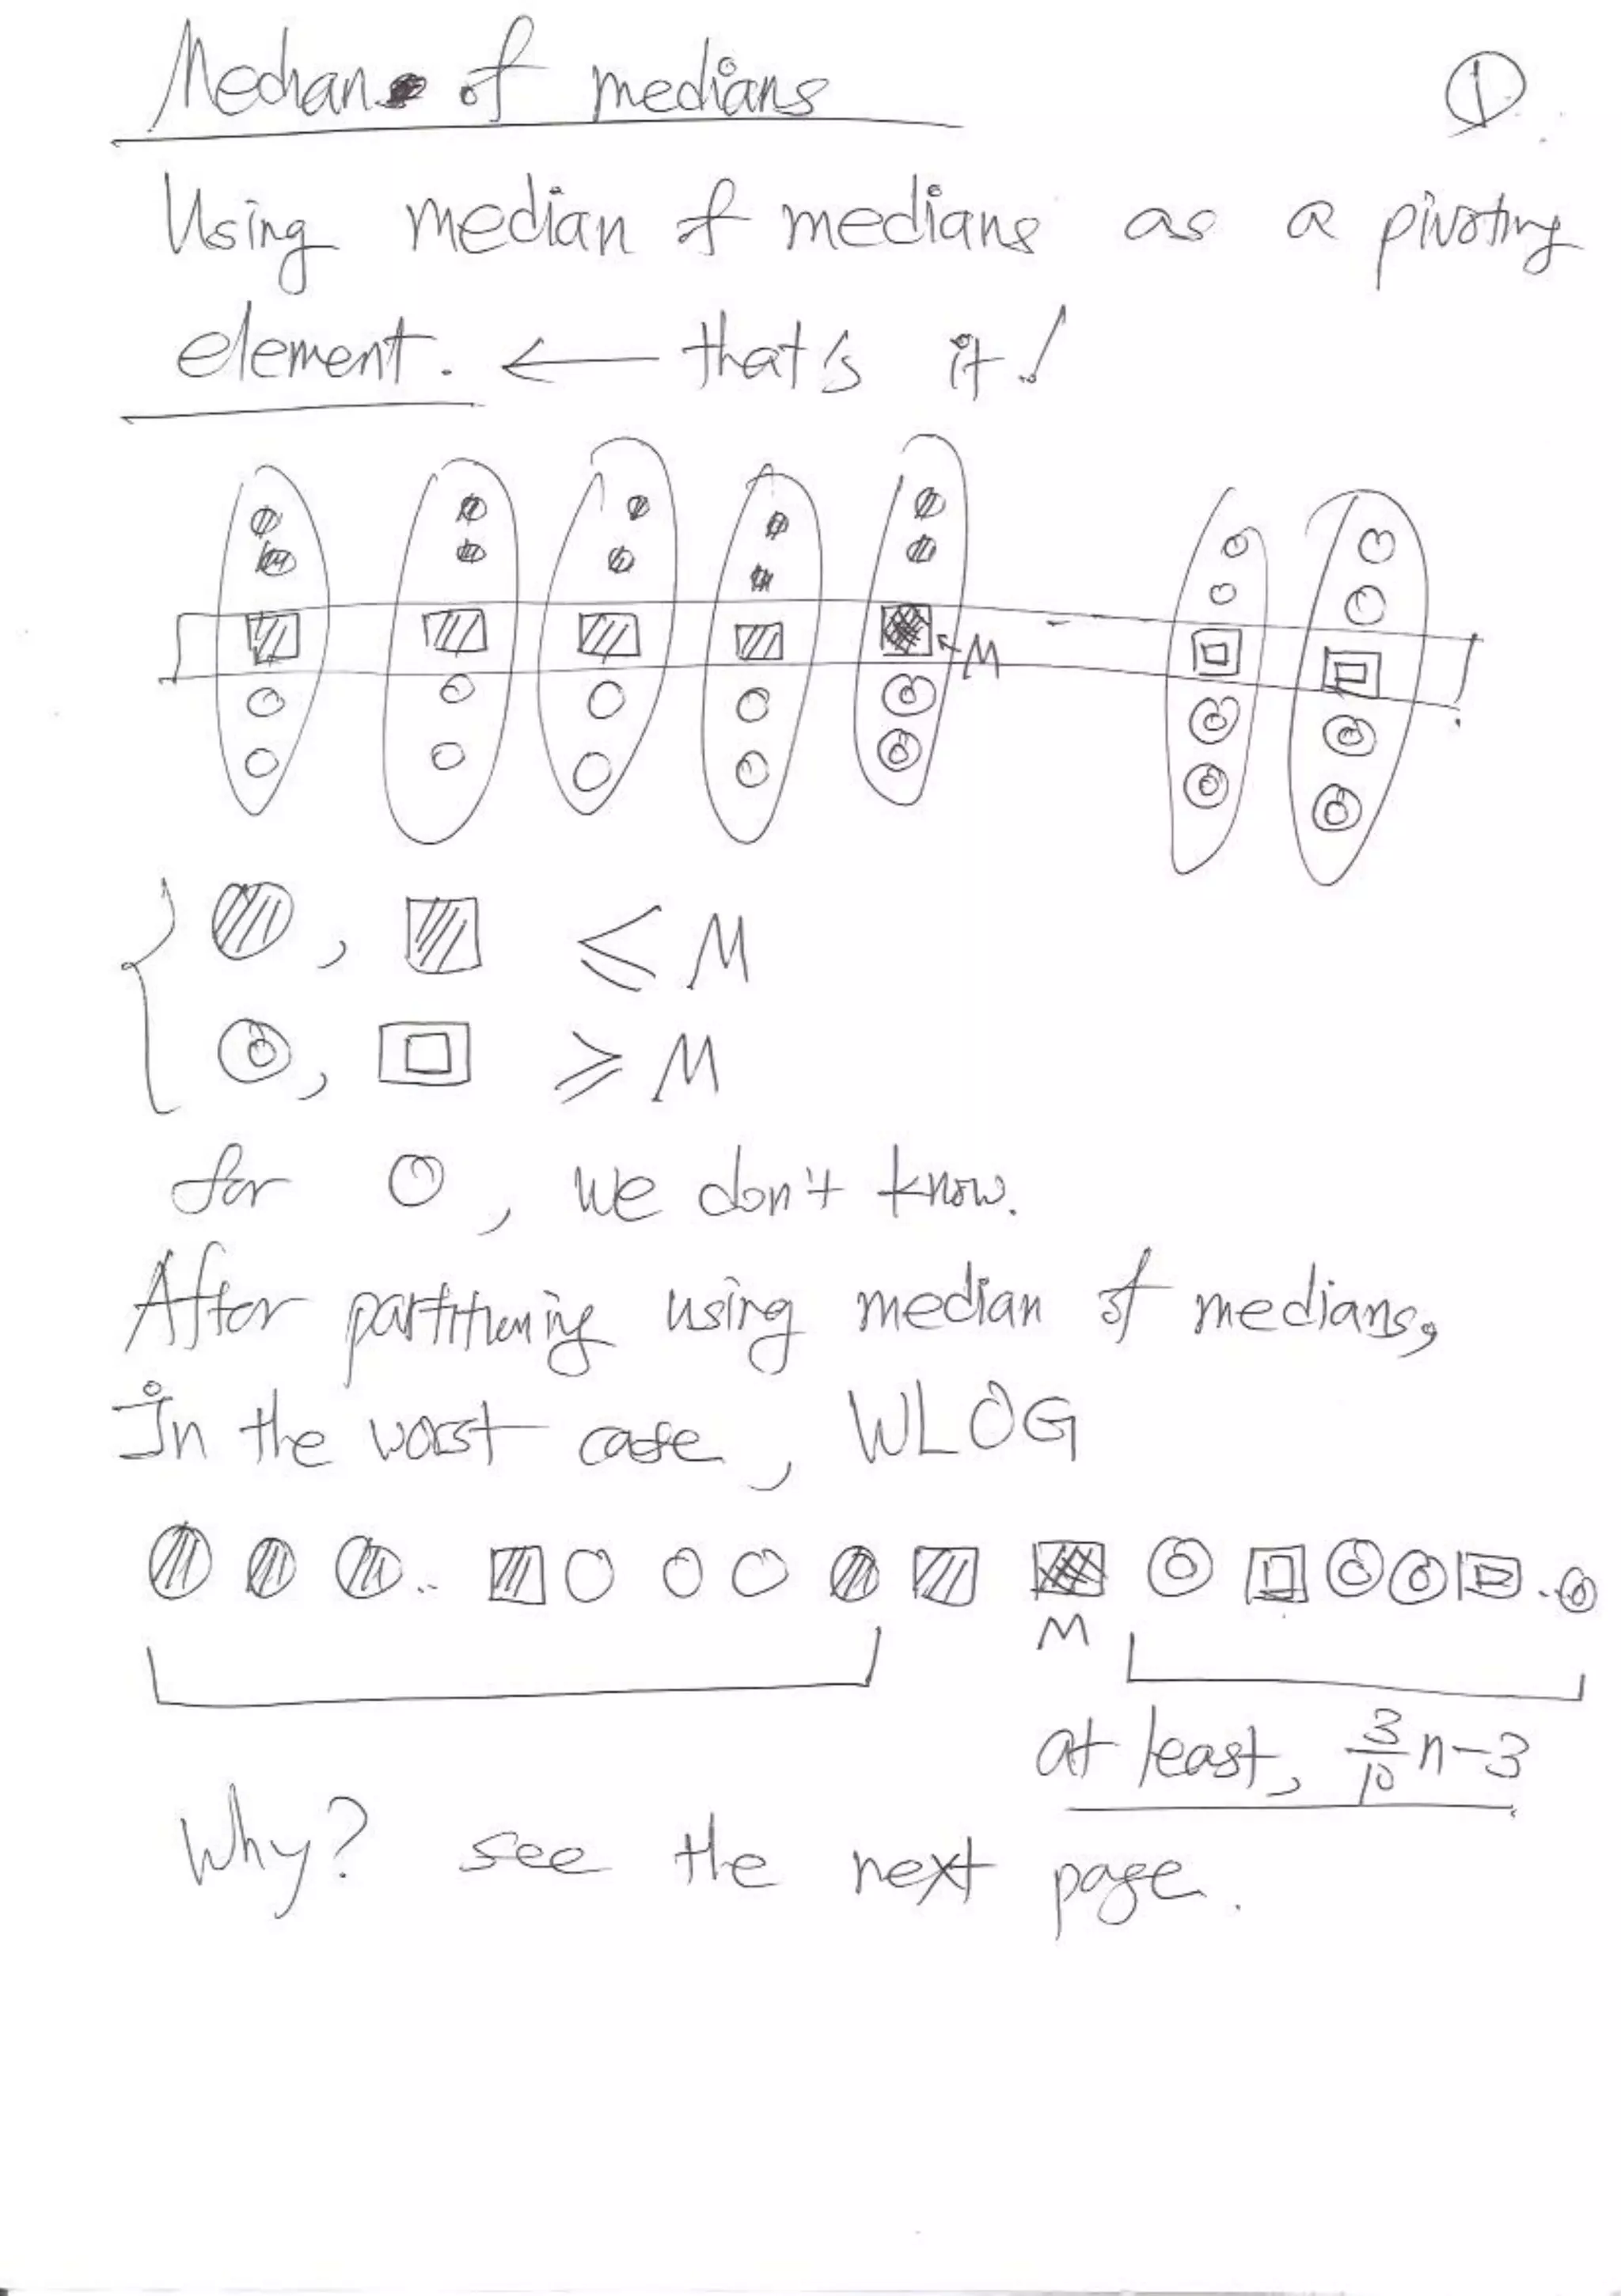 Median of medians
①
Using median of medians as a pivoting
element. ← that's it!
← M
, ≤ M
, ≥ M
for ○, we don't know.
After partitioning using median of medians,
In the worst case, WLOG
M
at least, 3/10 n-3
Why? see the next page.